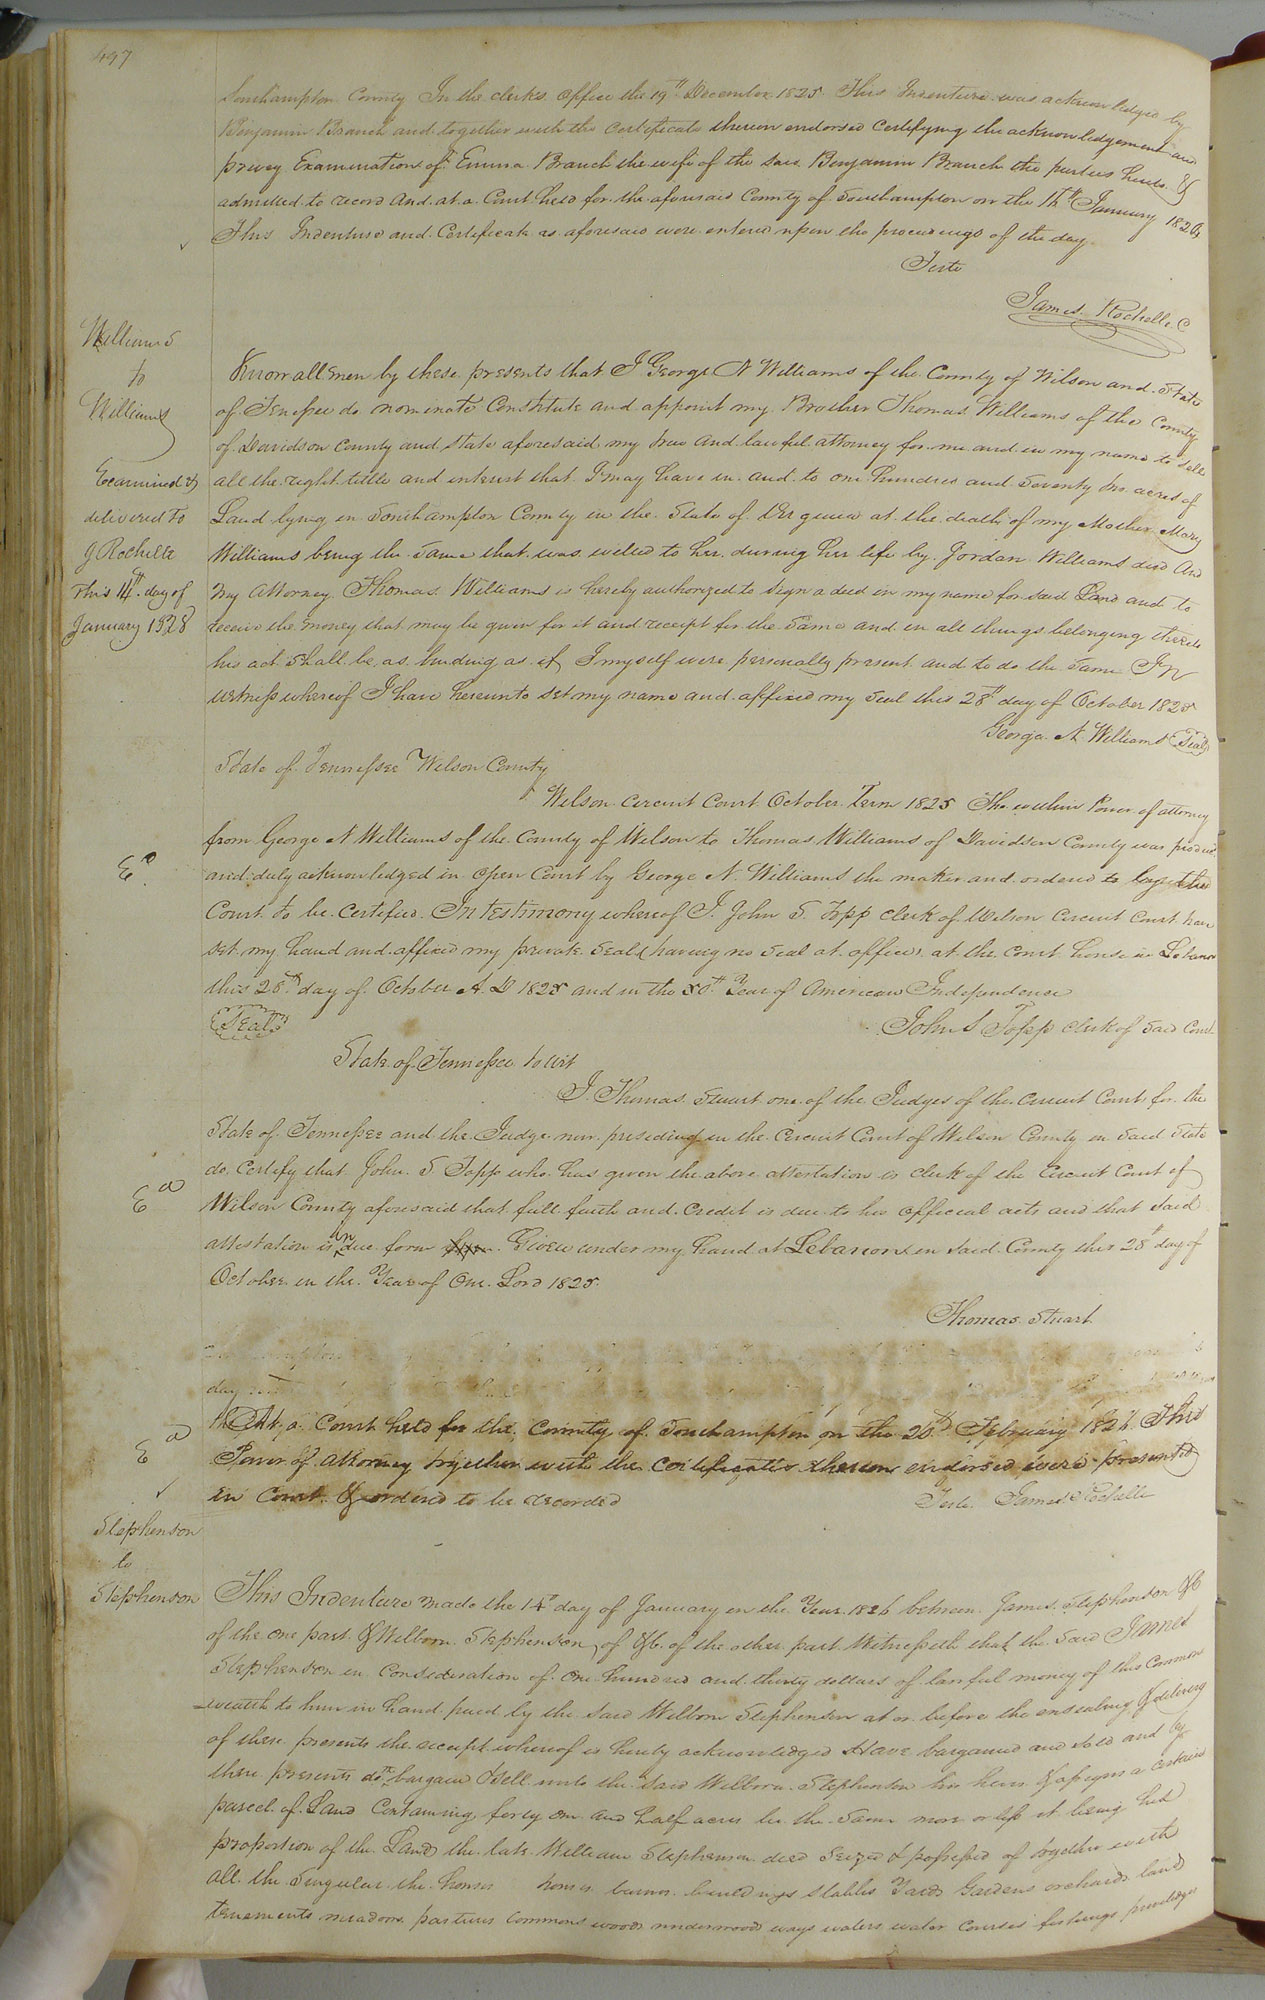 497
Southampton County In the clerks office the 19th December 1825 This Indenture was acknowledged by
Benjamin Branch and together with the certificate thereon endorsed certifying the acknowledgement and
privey Examination of Emma Branch the wife of the said Benjamin Branch the parties hereto &
admitted to record And at a Court held for the aforesaid County of Southampton on the January 1826
This Indenture and Certificate as aforesaid were entered upon the proceedings of the day.
Teste
James Rochelle C
Williams
to
Williams
Examined &
delivered to
J Rochelle
this 14th day of
January 1828
Know all men by these presents that I George N Williams of the County of Wilson and State
of Tenessee do nominate Constitute and appoint my Brother Thomas Williams of the County
of Davidson County and State aforesaid my true and lawful attorney for me and in my name to sell
all the right title and interest that I may have in and to one hundred and Seventy acres of
Land lying in Southampton County in the State of Virginia at the death of my Mother Mary
Williams being the same that was willed to her during her life by Jordan Williams decd And
my Attorney Thomas Williams is hereby authorized to sign a deed in my name for said Land and to
receive the money that may be given for it and receipt for the same and in all things belonging thereto
his act shall be as binding as if I myself were personally present and to do the same In
witness whereof I have hereunto set my name and affixed my Seal this 28th day of October 1825
George N. Williams Seal
State of Tennessee Wilson County
Wilson Circuit Court October Term 1825 The within Power of attorney
from George N Williams of the County of Wilson to Thomas Williams of Davidson County was
and duly acknowledged in Open Court by George N. Williams the maker and ordered to by the
Court to be Certified In testimony whereof I John S. Topp clerk of Wilson Circuit Court have
set my hand and affixed my private Seal (having no Seal at office) at the Court house in Lebanon
this 28th day of October A.D 1825 and in the 50th Year of American Independence
Seal
John S Topp clerk of said Court
State of Tennessee to wit
I Thomas Stuart one of the Judges of the Circuit Courts for the
State of Tennessee and the Judge now presiding in the Circuit Court of Wilson County in said State
do Certify that John S Topp who has given the above attestation is clerk of the Circuit Court of
Wilson County aforesaid that full faith and credit is due to his official acts and that said
attestation is in due form Given under my hand at Lebanon in said County this 28th day of
October in the Year of Our Lord 1825.
Thomas Stuart
day
At a Court held for the County of Southampton on the 20th February 1826 This
Power of Attorney together with the certificates thereon endorsed were presented
in Court & ordered to be recorded
Teste James Rochelle
Stephenson
to
Stephenson
This Indenture made the 14th day of January in the Year 1826 between James Stephenson &c
of the one part & Welborn Stephenson of &c of the other part Witnesseth that the said James
Stephenson in Consideration of One hundred and thirty dollars of lawful money of this Common
wealth to him in hand paid by the said Welborn Stephenson at or before the ensealing & delivery
of these presents the receipt whereof is hereby acknowledged Have bargained and sold and by
these presents doth bargain & sell unto the said Welborn Stephenson his heirs & assigns a certain
parcel of Land Containing forty one and half acres be the same more or less it being his
proportion of the Land the late William Stephenson decd Seized & possessed of together with
all the Singular the houses barns buildings Stables Yards Gardens orchards land
tenements meadows pastures commons woods underwood ways waters water courses fishings priviledges